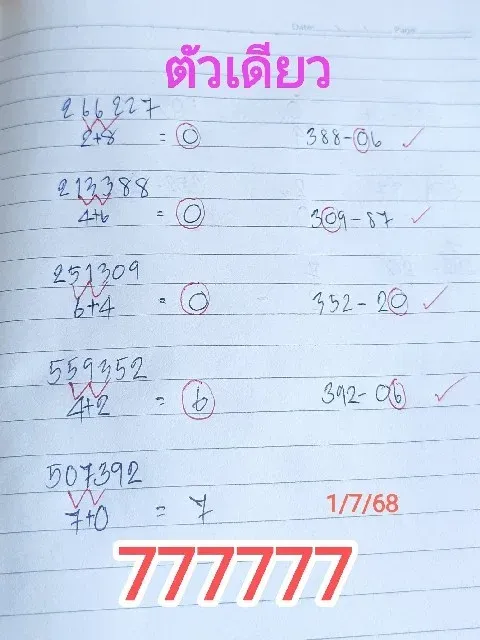 Date: Page
ตัวเดียว
266227
2+8 = 0 388-06 ✓
213388
4+6 = 0 309-87 ✓
251309
6+4 = 0 352-20 ✓
559352
4+2 = 6 392-06 ✓
507392
7+0 = 7 1/7/68
777777